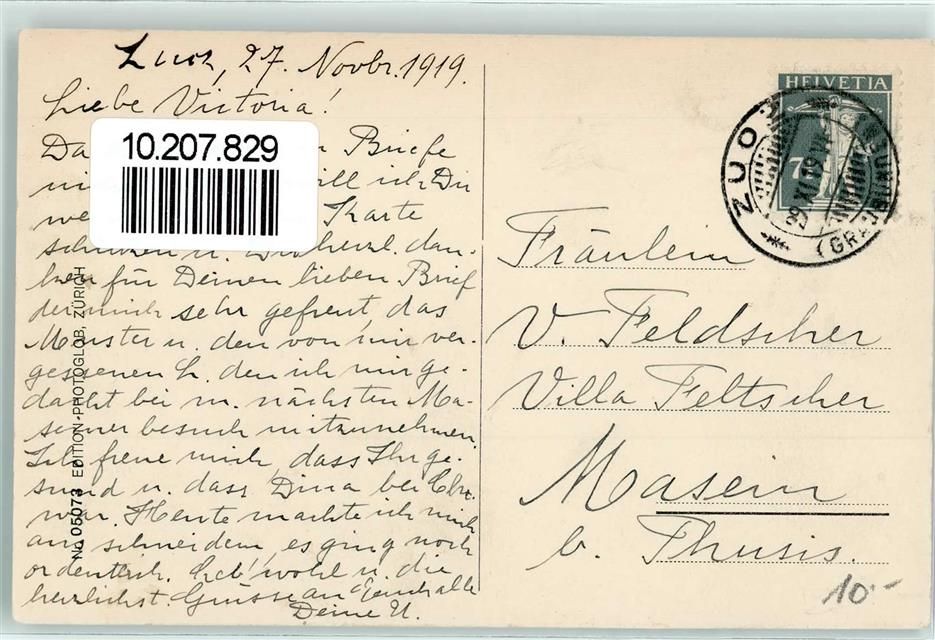 Zuoz, 27. Novbr. 1919.
Liebe Victoria!
Da Briefe
will ich Dir
Karte
u. Dir herzl. dan-
ken für Deinen lieben Brief
der mich sehr gefreut, das
Muster u. den von mir ver-
gessenen h. den ich mir ge-
dacht bei m. nächsten Ma-
seiner besuch mitzunehmen.
Ich freue mich, dass Ihr ge-
sund u. dass Dina bei Chr.
war. Heute machte ich mich
ans schneidern, es ging noch
ordentlich. Leb' wohl u. die
herzlichst. Grüsse an Euch alle
Deine U.
10.207.829
No 05073 EDITION-PHOTOGLOB, ZÜRICH
HELVETIA
7½
ZUOZ
29. XI. 19
(GRAUBÜNDEN)
Fräulein
V. Feldscher
Villa Feltscher
Masein
b. Thusis.
10.-